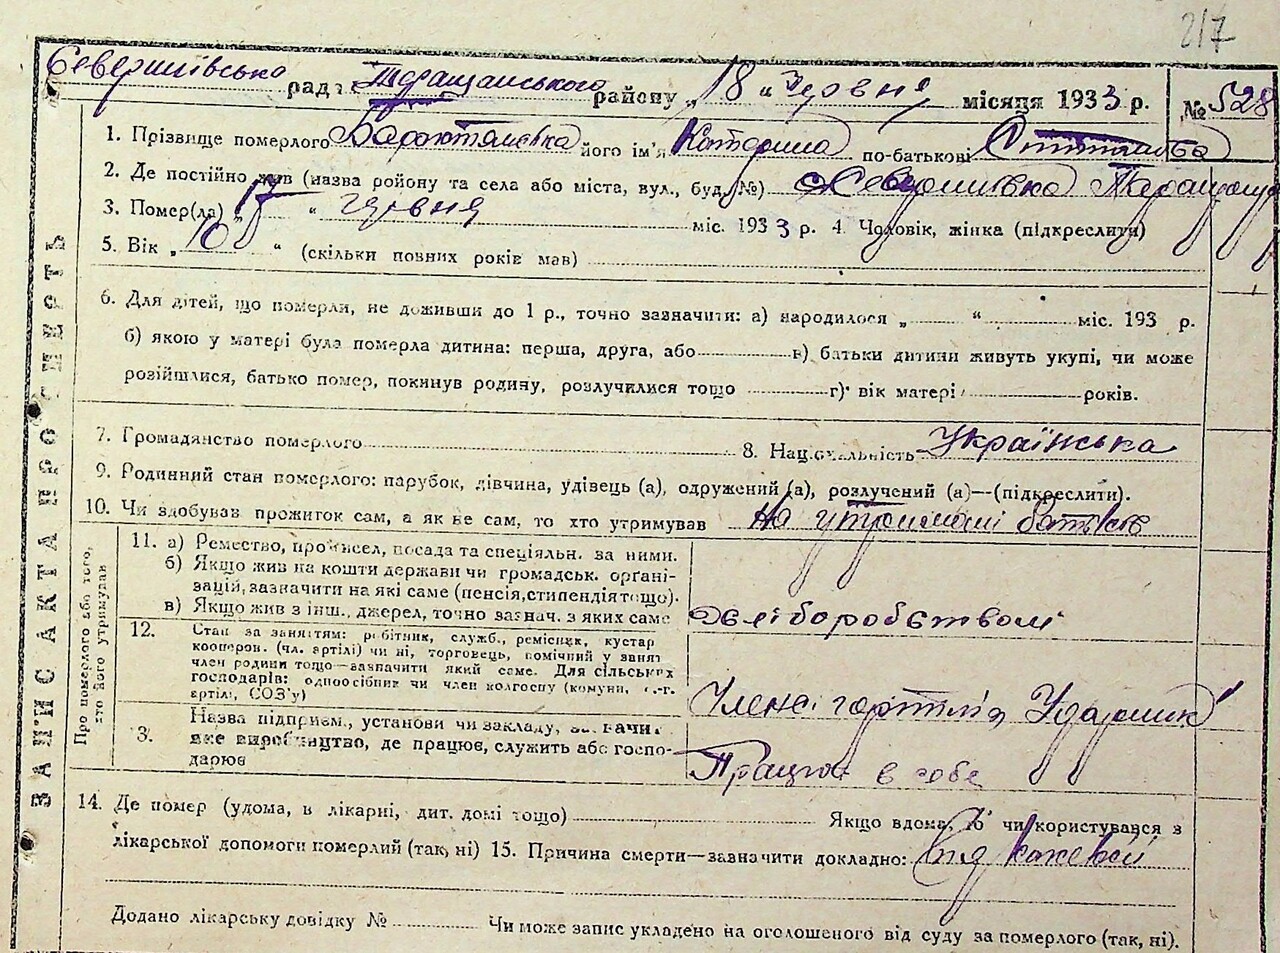 217
рада Таращанського району „18 “ червня місяця 1933 р. № 528
1. Прізвище померлого його ім'я Катерина по-батькові
2. Де постійно жив (назва ройону та села або міста, вул., буд. №)
3. Помер(ла) „17 “ червня міс. 1933 р. 4. Чоловік, жінка (підкреслити)
5. Вік „ 10 “ (скільки повних років мав)
6. Для дітей, що померли, не доживши до 1 р., точно зазначити: а) народилося „ “ міс. 193 р.
б) якою у матері була померла дитина: перша, друга, або в) батьки дитини живуть укупі, чи може
розійшлися, батько помер, покинув родину, розлучилися тощо г) вік матері років.
7. Громадянство померлого 8. Національність Українська
9. Родинний стан померлого: парубок, дівчина, удівець (а), одружений (а), розлучений (а)—(підкреслити).
10. Чи здобував прожиток сам, а як не сам, то хто утримував на утриманні батьків
ЗАПИС АКТА ПРО СМЕРТЬ
Про померлого або того, хто його утримував
11. а) Ремество, промисел, посада та спеціяльн. за ними.
б) Якщо жив на кошти держави чи громадськ. орґані-
зацій, зазначити на які саме (пенсія, стипендія тощо).
в) Якщо жив з інш. джерел, точно зазнач. з яких саме
хліборобством
12. Стан за заняттям: робітник, служб., ремісник, кустар
кооперов. (чл. артілі) чи ні, торговець, помічний у занят
член родини тощо—зазначити який саме. Для сільських
господарів: одноосібник чи член колгоспу (комуни, с.-г.
артілі, СОЗ'у)
Ударник
13. Назва підприєм., установи чи закладу, зазначи
вже виробництво, де працює, служить або госпо-
дарює
Працює в себе
14. Де помер (удома, в лікарні, дит. домі тощо) Якщо вдома, то чи користувався з
лікарської допомоги померлий (так, ні) 15. Причина смерти—зазначити докладно:
Додано лікарську довідку № Чи може запис укладено на оголошеного від суду за померлого (так, ні).